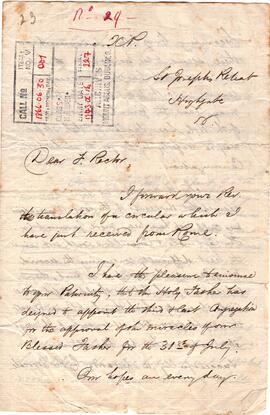 23
No 29
X.P.
St Joseph's Retreat
Highgate
N.
CALL No
Dear F. Rector,
I forward your Rev.
the translation of a circular which I
have just received from Rome.
I have the pleasure to announce
to your Paternity, that the Holy Father has
deigned to appoint the third & last Congregation
for the approval of the miracles of our
Blessed Father for the 31st of July.
Our hopes are every day